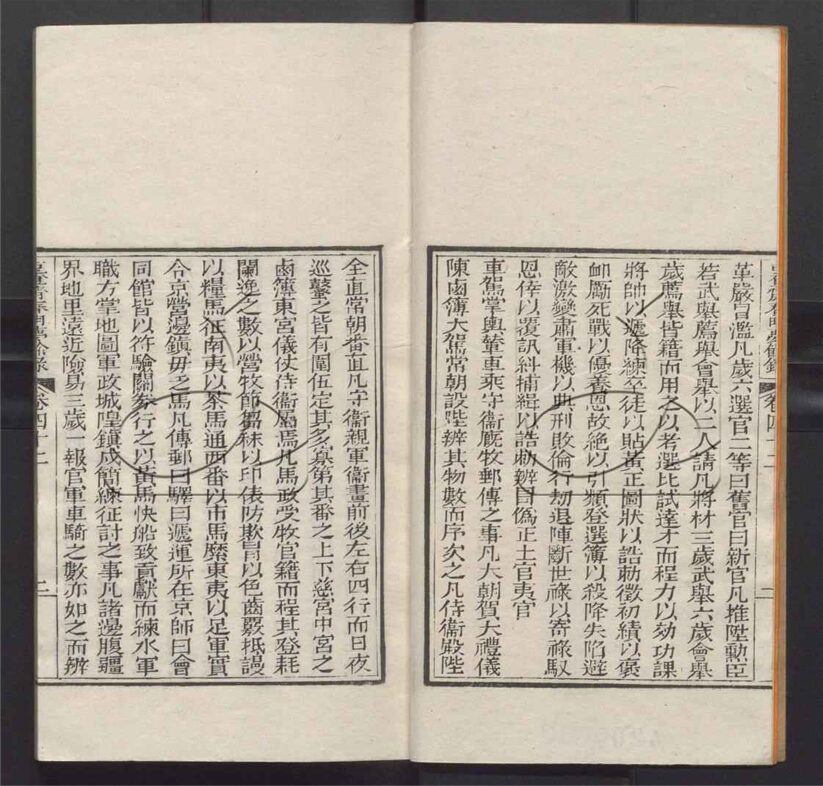 革嚴冒濫凡歲六選官二等曰舊官曰新官凡推陞勲臣
若武舉薦舉會舉以二人請凡將材三歲武舉六歲會舉
歲薦舉皆籍而用之以考選比試達才而程力以効功課
將帥以遞降練卒徒以貼黃正圖狀以誥勅徵初績以褒
卹勵死戰以優養恩故絶以引類登選簿以殺降失陷避
敵激變肅軍機以典刑敗倫行刼退陣斷世祿以寄祿馭
恩倖以覆訊斜捕緝以誥勅辨官偽正土官夷官
車駕掌輿輦車乘守衞厩牧郵傳之事凡大朝賀大禮儀
陳鹵簿大駕常朝設陛辨其物數而序次之凡侍衞殿陛
卷四十二
二
全直常朝番直凡守衞親軍衞畫前後左右四行而日夜
巡鼛之皆有圍伍定其多寡第其番之上下慈宮中宮之
鹵簿東宮儀仗侍衞屬焉凡馬政受牧官籍而程其登耗
闌逸之數以營牧節芻秣以印俵防欺冒以色齒覈抵謾
以糧馬征南夷以茶馬通西番以市馬縻東夷以足軍實
令京營邊鎮毋乏馬凡傳郵曰驛曰遞運所在京師曰會
同館皆以符驗關券行之以黃馬快船致貢獻而練水軍
職方掌地圖軍政城隍鎮戍簡練征討之事凡諸邊腹疆
界地里遠近險易三歲一報官軍車騎之數亦如之而辨
卷四十二
二